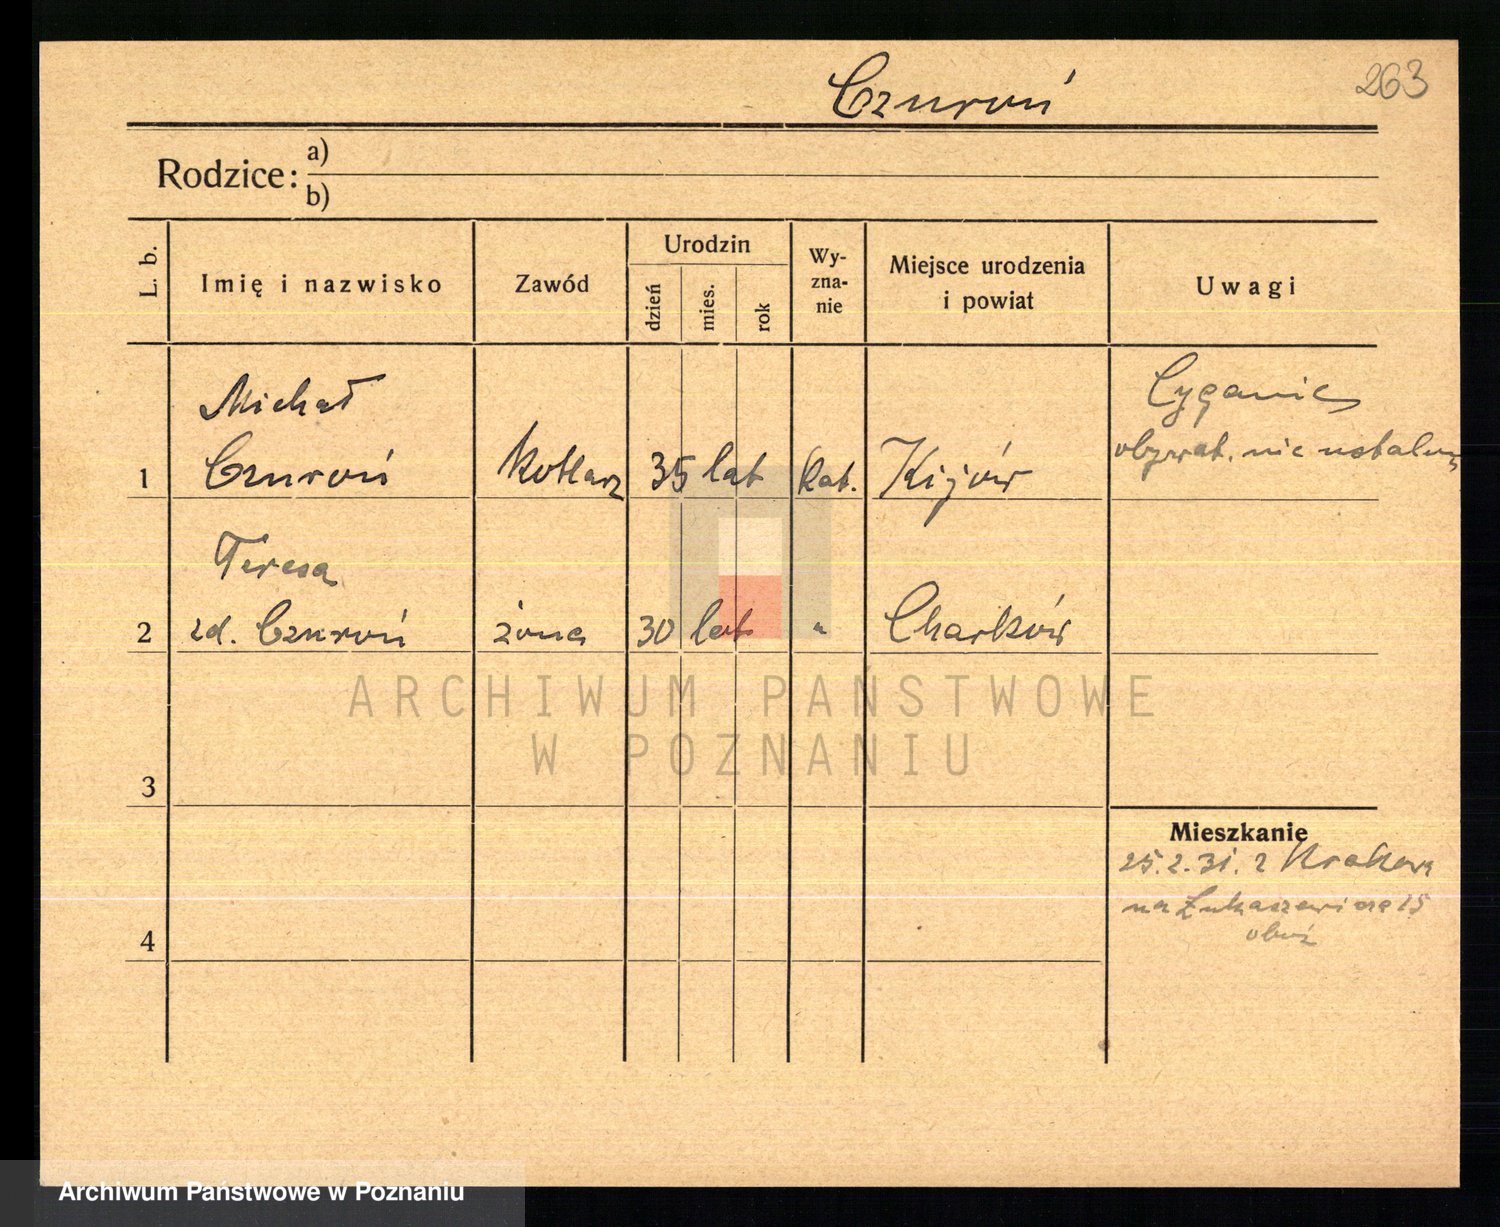 Czuroń
263
Rodzice:
a)
b)
L. b.
Imię i nazwisko
Zawód
Urodzin
dzień
mies.
rok
Wy-
zna-
nie
Miejsce urodzenia
i powiat
Uwagi
Michał
1 Czuroń Kotlarz 35 lat Kat. Kijów
Cyganie
obywat. nie ustalony
Teresa
2 zd. Czuroń żona 30 lat " Charków
ARCHIWUM PAŃSTWOWE
W POZNANIU
3
Mieszkanie
25.2.31. z Krakowa
na Łukaszewicza 15
obóz
4
Archiwum Państwowe w Poznaniu